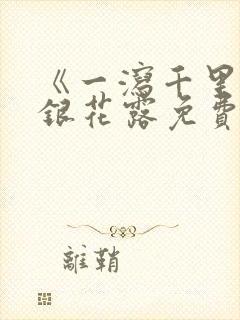 《一瀉千里
銀花露免費
離鞘